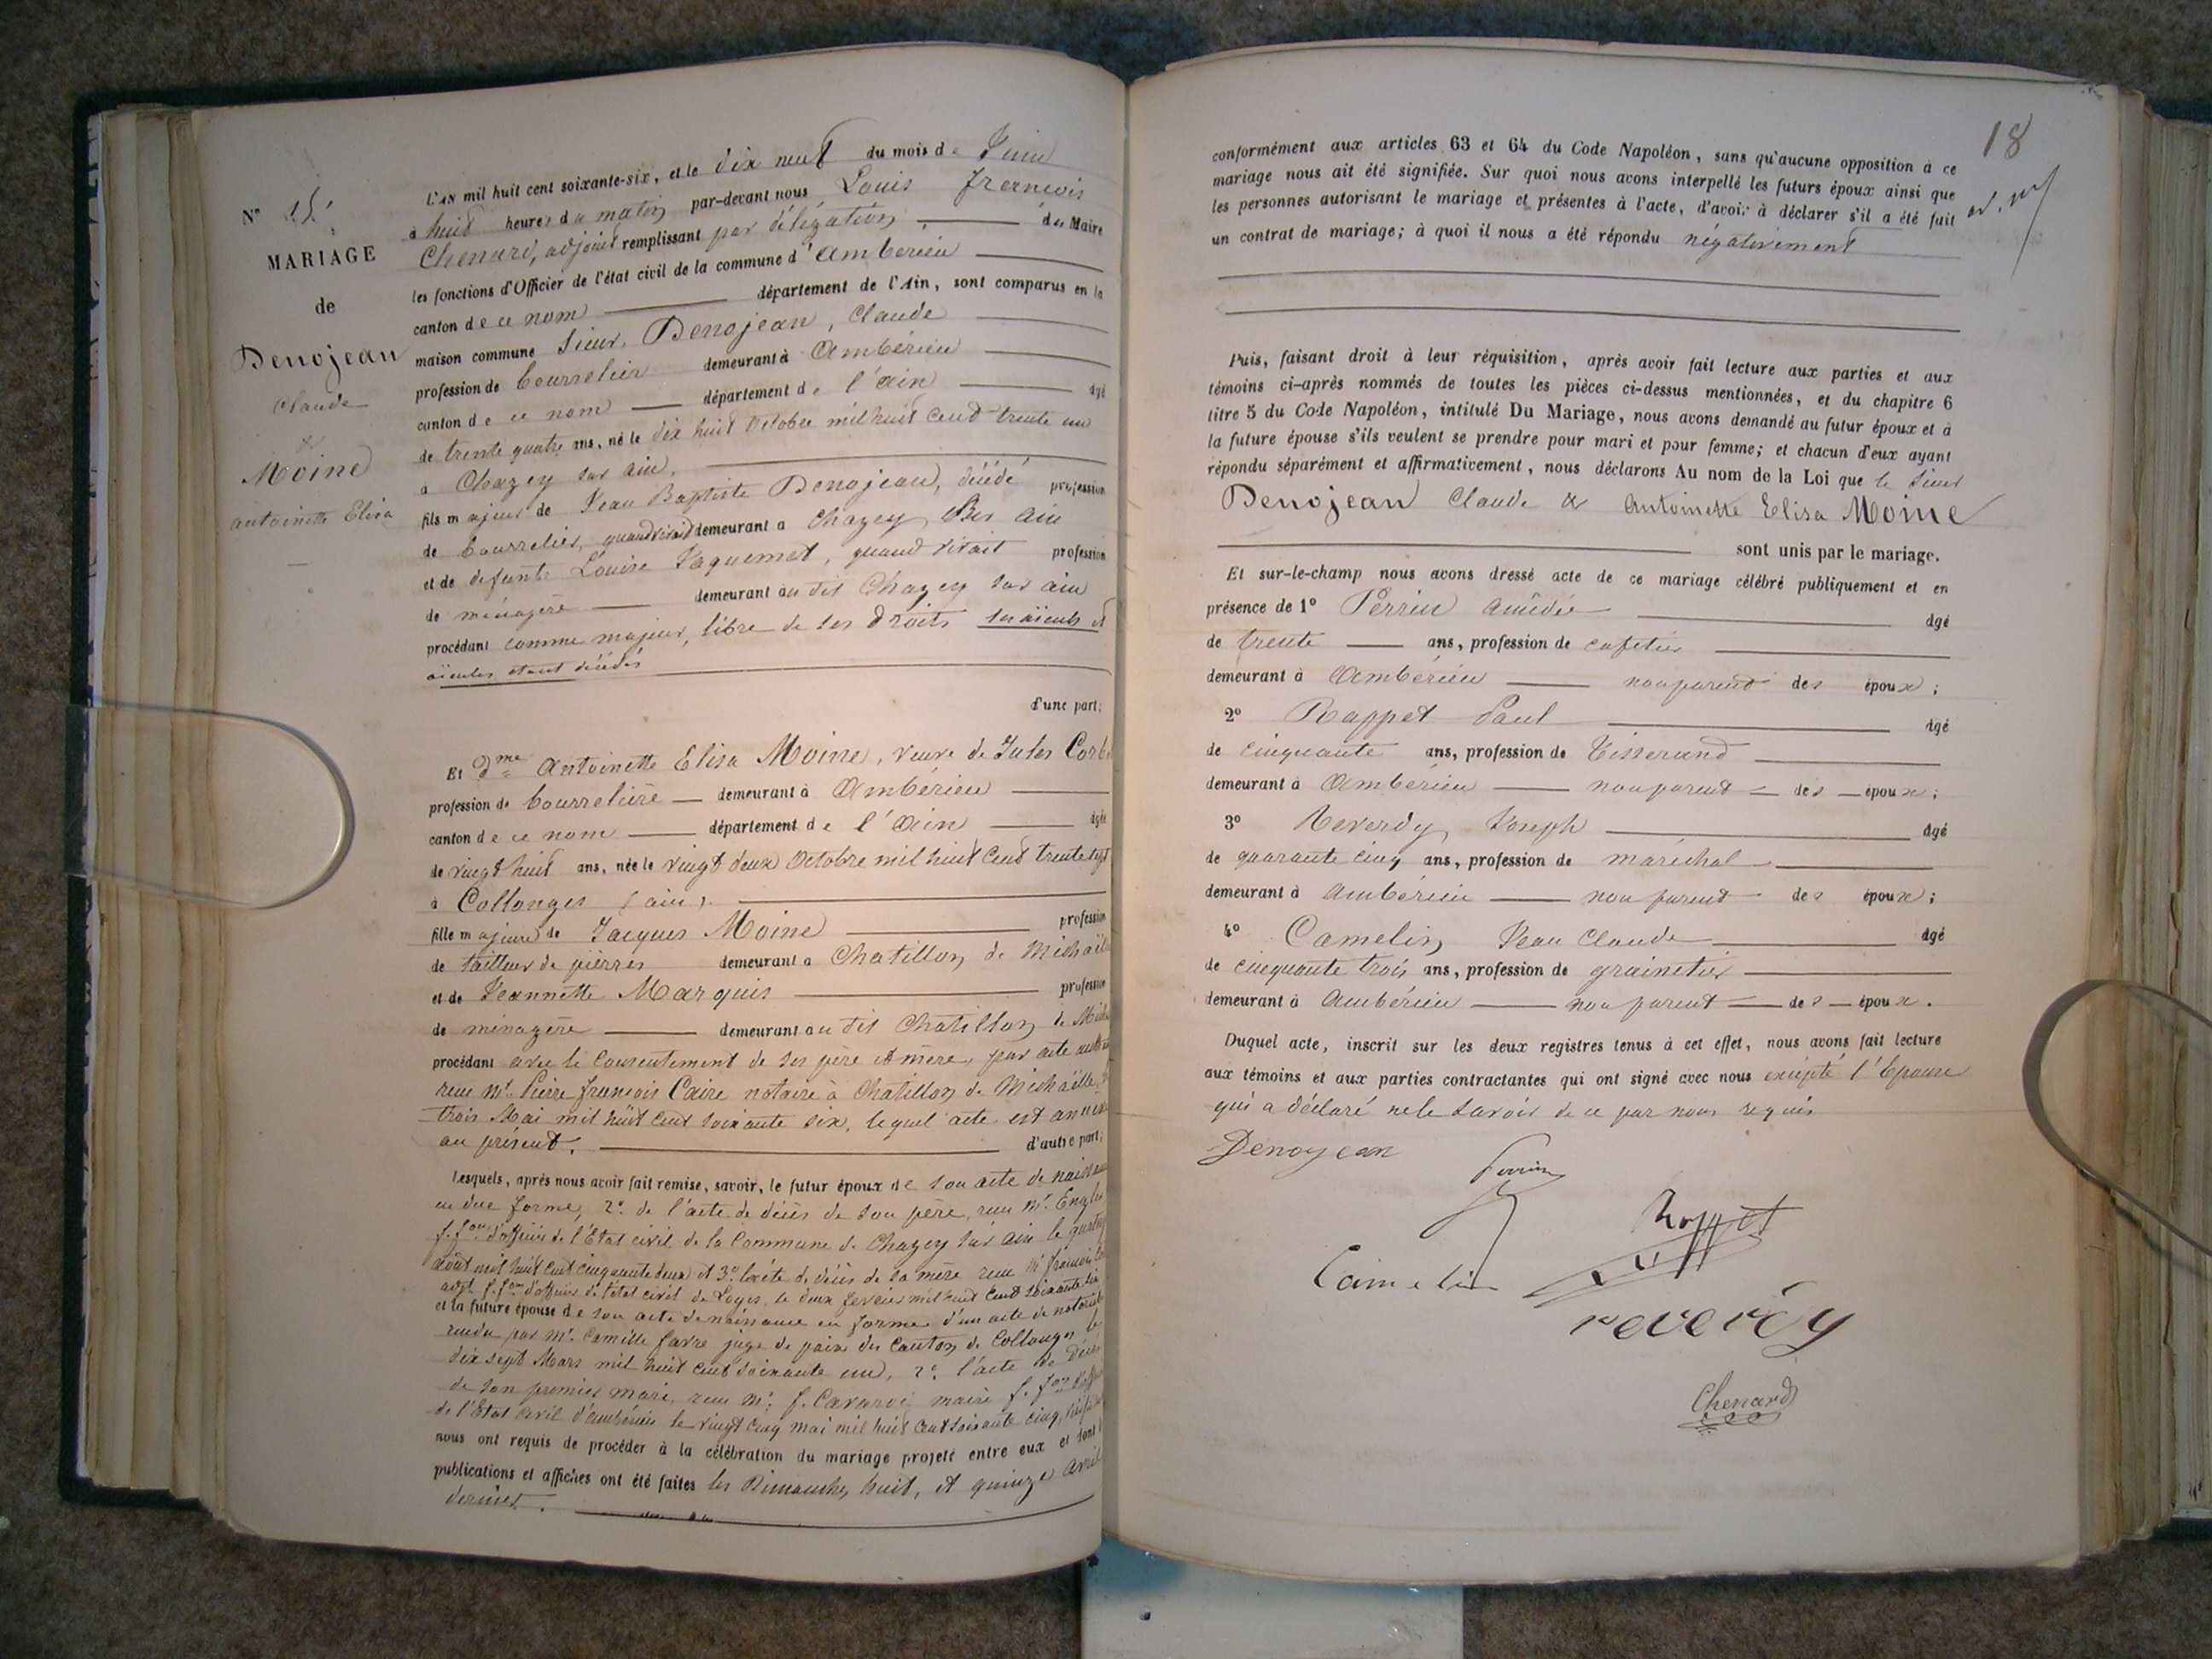 N° 15.
MARIAGE
de
Denojean
Claude
&
Moine
antoinette Elisa
L'AN mil huit cent soixante-six, et le dix neuf du mois de Juin
à huit heures du matin par-devant nous Louis françois
Chenard, adjoint remplissant par délégation, du Maire
les fonctions d'Officier de l'état civil de la commune d'ambérieu
canton de ce nom département de l'Ain, sont comparus en la
maison commune sieur, Denojean, Claude
profession de bourrelier demeurant à Ambérieu
canton de ce nom département de l'ain âgé
de trente quatre ans, né le dix huit octobre mil huit cent trente un
à Chazey sur ain,
fils majeur de Jean Baptiste Denojean, décédé profession
de bourrelier, quand vivait demeurant à Chazey sur ain
et de defunte Louise Jaquemet, quand vivait profession
de ménagère demeurant au dit Chazey sur ain
procédant comme majeur, libre de ses droits ses aïeuls et
aïeules étant décédés
d'une part;
Et dme Antoinette Elisa Moine, veuve de Jules
profession de bourrelière demeurant à Ambérieu
canton de ce nom département de l'Ain âgée
de vingt huit ans, née le vingt deux Octobre mil huit cent trente sept
à Collonges (ain).
fille majeure de Jacques Moine profession
de tailleur de pierres demeurant à Chatillon de Michaille
et de Jeannette Marquis profession
de ménagère demeurant au dit Chatillon de
procédant avec le consentement de ses père et mère, par acte
reçu Mr. Pierre françois Caire notaire à Chatillon de Michaille
trois Mai mil huit cent soixante six, lequel acte est annexé
au présent. d'autre part;
Lesquels, après nous avoir fait remise, savoir, le futur époux de son acte de naissance
en due forme, 2° de l'acte de décès de son père, reçu Mr.
f. fons d'officier de l'Etat civil de la Commune de Chazey sur ain le
août mil huit cent cinquante deux et 3° l'acte de décès de sa mère reçu Mr françois
adjt f. fons d'officier de l'état civil de Loyes, le deux fevrier mil huit cent soixante six
et la future épouse de son acte de naissance en forme d'un acte de notoriété
rendu par Mr. Camille favre juge de paix du Canton de Collonges le
dix sept Mars mil huit cent soixante un, 2° l'acte de décès
de son premier mari, reçu Mr. f. maire f. fons
de l'Etat civil d'ambérieu le vingt cinq mai mil huit cent soixante cinq,
nous ont requis de procéder à la célébration du mariage projeté entre eux et dont les
publications et affiches ont été faites les Dimanches huit, et quinze avril
dernier.
18
conformément aux articles 63 et 64 du Code Napoléon, sans qu'aucune opposition à ce
mariage nous ait été signifiée. Sur quoi nous avons interpellé les futurs époux ainsi que
les personnes autorisant le mariage et présentes à l'acte, d'avoir à déclarer s'il a été fait
un contrat de mariage; à quoi il nous a été répondu négativement
Puis, faisant droit à leur réquisition, après avoir fait lecture aux parties et aux
témoins ci-après nommés de toutes les pièces ci-dessus mentionnées, et du chapitre 6
titre 5 du Code Napoléon, intitulé Du Mariage, nous avons demandé au futur époux et à
la future épouse s'ils veulent se prendre pour mari et pour femme; et chacun d'eux ayant
répondu séparément et affirmativement, nous déclarons Au nom de la Loi que le sieur
Denojean Claude & Antoinette Elisa Moine
sont unis par le mariage.
Et sur-le-champ nous avons dressé acte de ce mariage célébré publiquement et en
présence de 1° Perrin amédée âgé
de trente ans, profession de cafetier
demeurant à Ambérieu non parent des époux;
2° Rappet Paul âgé
de cinquante ans, profession de Tisserand
demeurant à Ambérieu non parent des époux;
3° Reverdy Joseph âgé
de quarante cinq ans, profession de maréchal
demeurant à Ambérieu non parent des époux;
4° Camelin Jean Claude âgé
de cinquante trois ans, profession de grainetier
demeurant à Ambérieu non parent des époux.
Duquel acte, inscrit sur les deux registres tenus à cet effet, nous avons fait lecture
aux témoins et aux parties contractantes qui ont signé avec nous excepté l'épouse
qui a déclaré ne le savoir de ce par nous requis
Denojean
Perrin
Rappet
Camelin
reverdy
Chenard